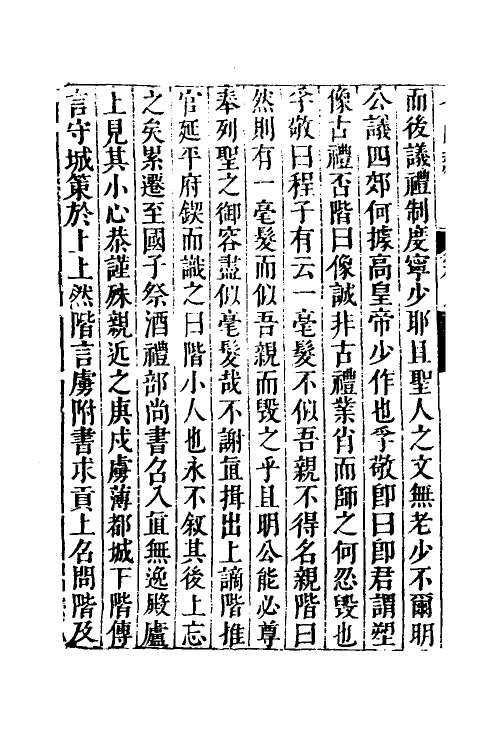 而後議禮制度寧少耶且聖人之文無老少不爾明
公議四郊何據高皇帝少作也孚敬卽曰卽君謂塑
像古禮否階曰像誠非古禮業肖而師之何忍毀也
孚敬曰程子有云一毫髮不似吾親不得名親階曰
然則有一毫髮而似吾親而毀之乎且明公能必尊
奉列聖之御容盡似毫髮哉不謝亶揖出上謫階推
官延平府鍥而識之曰階小人也永不叙其後上忘
之矣累遷至國子祭酒禮部尚書召入直無逸殿廬
上見其小心恭謹殊親近之庚戌虜薄都城下階傳
言守城策於上上然階言虜附書求貢上名問階及